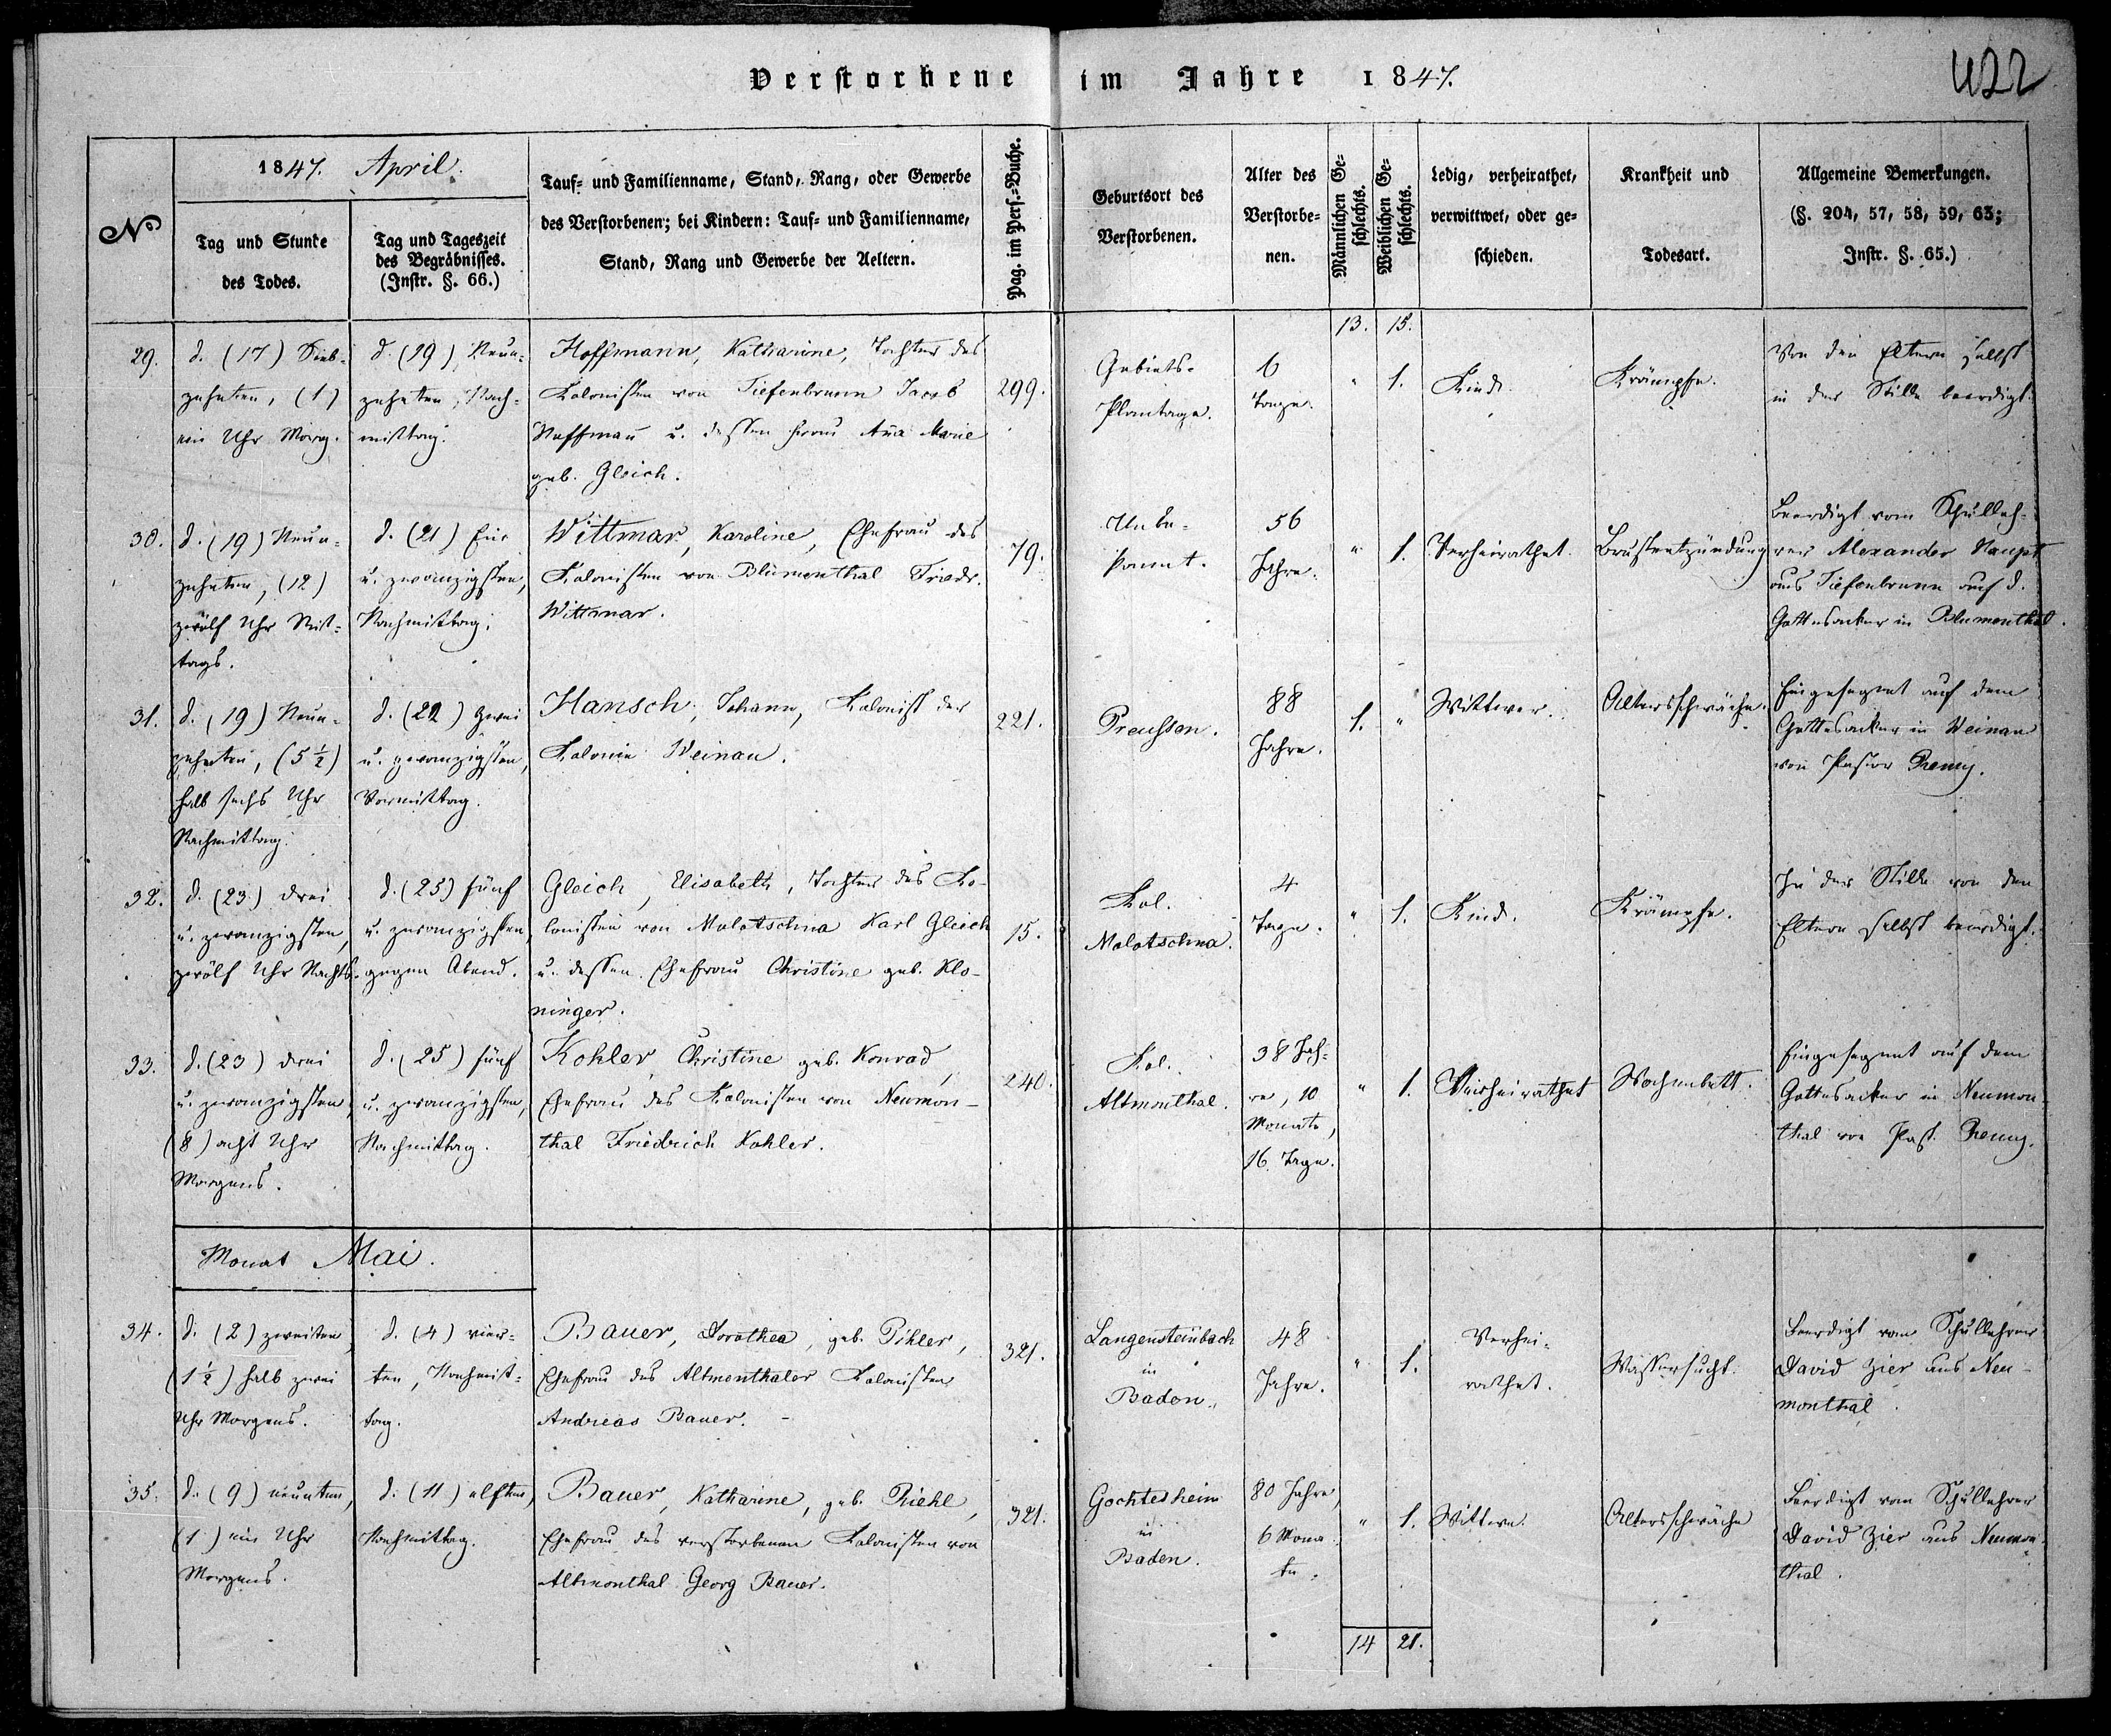 Verstorbene im Jahre 1847.
422
№
1847. April.
Tag und Stunde
des Todes.
Tag und Tageszeit
des Begräbnisses.
(Instr. §. 66.)
Tauf- und Familienname, Stand, Rang, oder Gewerbe
des Verstorbenen; bei Kindern: Tauf- und Familienname,
Stand, Rang und Gewerbe der Aeltern.
Pag. im Pers.-Buche.
Geburtsort des
Verstorbenen.
Alter des
Verstorbe-
nen.
Männlichen Ge-
schlechts.
Weiblichen Ge-
schlechts.
Ledig, verheirathet,
verwittwet, oder ge-
schieden.
Krankheit und
Todesart.
Allgemeine Bemerkungen.
(§. 204, 57, 58, 59, 63;
Instr. §. 65.)
13. 15.
29.
d. (17) Sieb-
zehnten, (1)
ein Uhr Morg.
d. (19) Neun-
zehnten, Nach-
mittag.
Hoffmann, Katharine, Tochter des
Kolonisten von Tiefenbrunn Jacob
Hoffmañ u. dessen Frau Aña Marie
geb. Gleich.
299.
Gebiets-
Plantage.
6
Tage.
" 1.
Kind.
Krämpfe.
Von den Eltern selbst
in der Stille beerdigt.
30.
d. (19) Neun-
zehnten, (12)
zwölf Uhr Mit-
tags.
d. (21) Ein
u. zwanzigsten,
Nachmittag.
Wittmar, Karoline, Ehefrau des
Kolonisten von Blumenthal Friedr.
Wittmar.
79.
Unbe-
kannt.
56
Jahre.
" 1.
Verheirathet.
Brustentzündung
Beerdigt vom Schulleh-
rer Alexander Haupt
aus Tiefenbrunn auf d.
Gottesacker in Blumenthal.
31.
d. (19) Neun-
zehnten, (5 1/2)
halb sechs Uhr
Nachmittag.
d. (22) zwei
u. zwanzigsten,
Vormittag.
Hansch, Johann, Kolonist der
Kolonie Weinau.
221.
Preussen.
88
Jahre.
1. "
Wittwer.
Altersschwäche.
Eingesegnet auf dem
Gottesacker in Weinau
von Pastor
32.
d. (23) drei
u. zwanzigsten,
zwölf Uhr Nachts.
d. (25) fünf
u. zwanzigsten,
gegen Abend.
Gleich, Elisabeth, Tochter des Ko-
lonisten von Molotschna Karl Gleich
u. dessen Ehefrau Christine geb. Klo-
ninger.
15.
Kol.
Molotschna.
4
Tage.
" 1.
Kind.
Krämpfe.
In der Stille von den
Eltern selbst beerdigt.
33.
d. (23) drei
u. zwanzigsten,
(8) acht Uhr
Morgens.
d. (25) fünf
u. zwanzigsten,
Nachmittag.
Kohler, Christine geb. Konrad,
Ehefrau des Kolonisten von Neumon-
thal Friedrich Kohler.
240.
Kol.
Altmonthal.
38 Jah-
re, 10
Monate,
16 Tage.
" 1.
Verheirathet
Wochenbett.
Eingesegnet auf dem
Gottesacker in Neumon-
thal von Past.
Monat Mai.
34.
d. (2) zweiten,
(1 1/2) halb zwei
Uhr Morgens.
d. (4) vier-
ten, Nachmit-
tag.
Bauer, Dorothea, geb. Pihler,
Ehefrau des Altmonthaler Kolonisten
Andreas Bauer. –
321.
Langensteinbach
in
Baden.
48
Jahre.
" 1.
Verhei-
rathet.
Wassersucht.
Beerdigt vom Schullehrer
David Zier aus Neu-
monthal.
35.
d. (9) neunten,
(1) ein Uhr
Morgens.
d. (11) elften,
Nachmittag.
Bauer, Katharine, geb. Riehl,
Ehefrau des verstorbenen Kolonisten von
Altmonthal Georg Bauer.
321.
Gochtesheim
in
Baden.
80 Jahre,
6 Mona-
te.
" 1.
Wittwe.
Altersschwäche
Beerdigt vom Schullehrer
David Zier aus Neumon-
thal.
14 21.